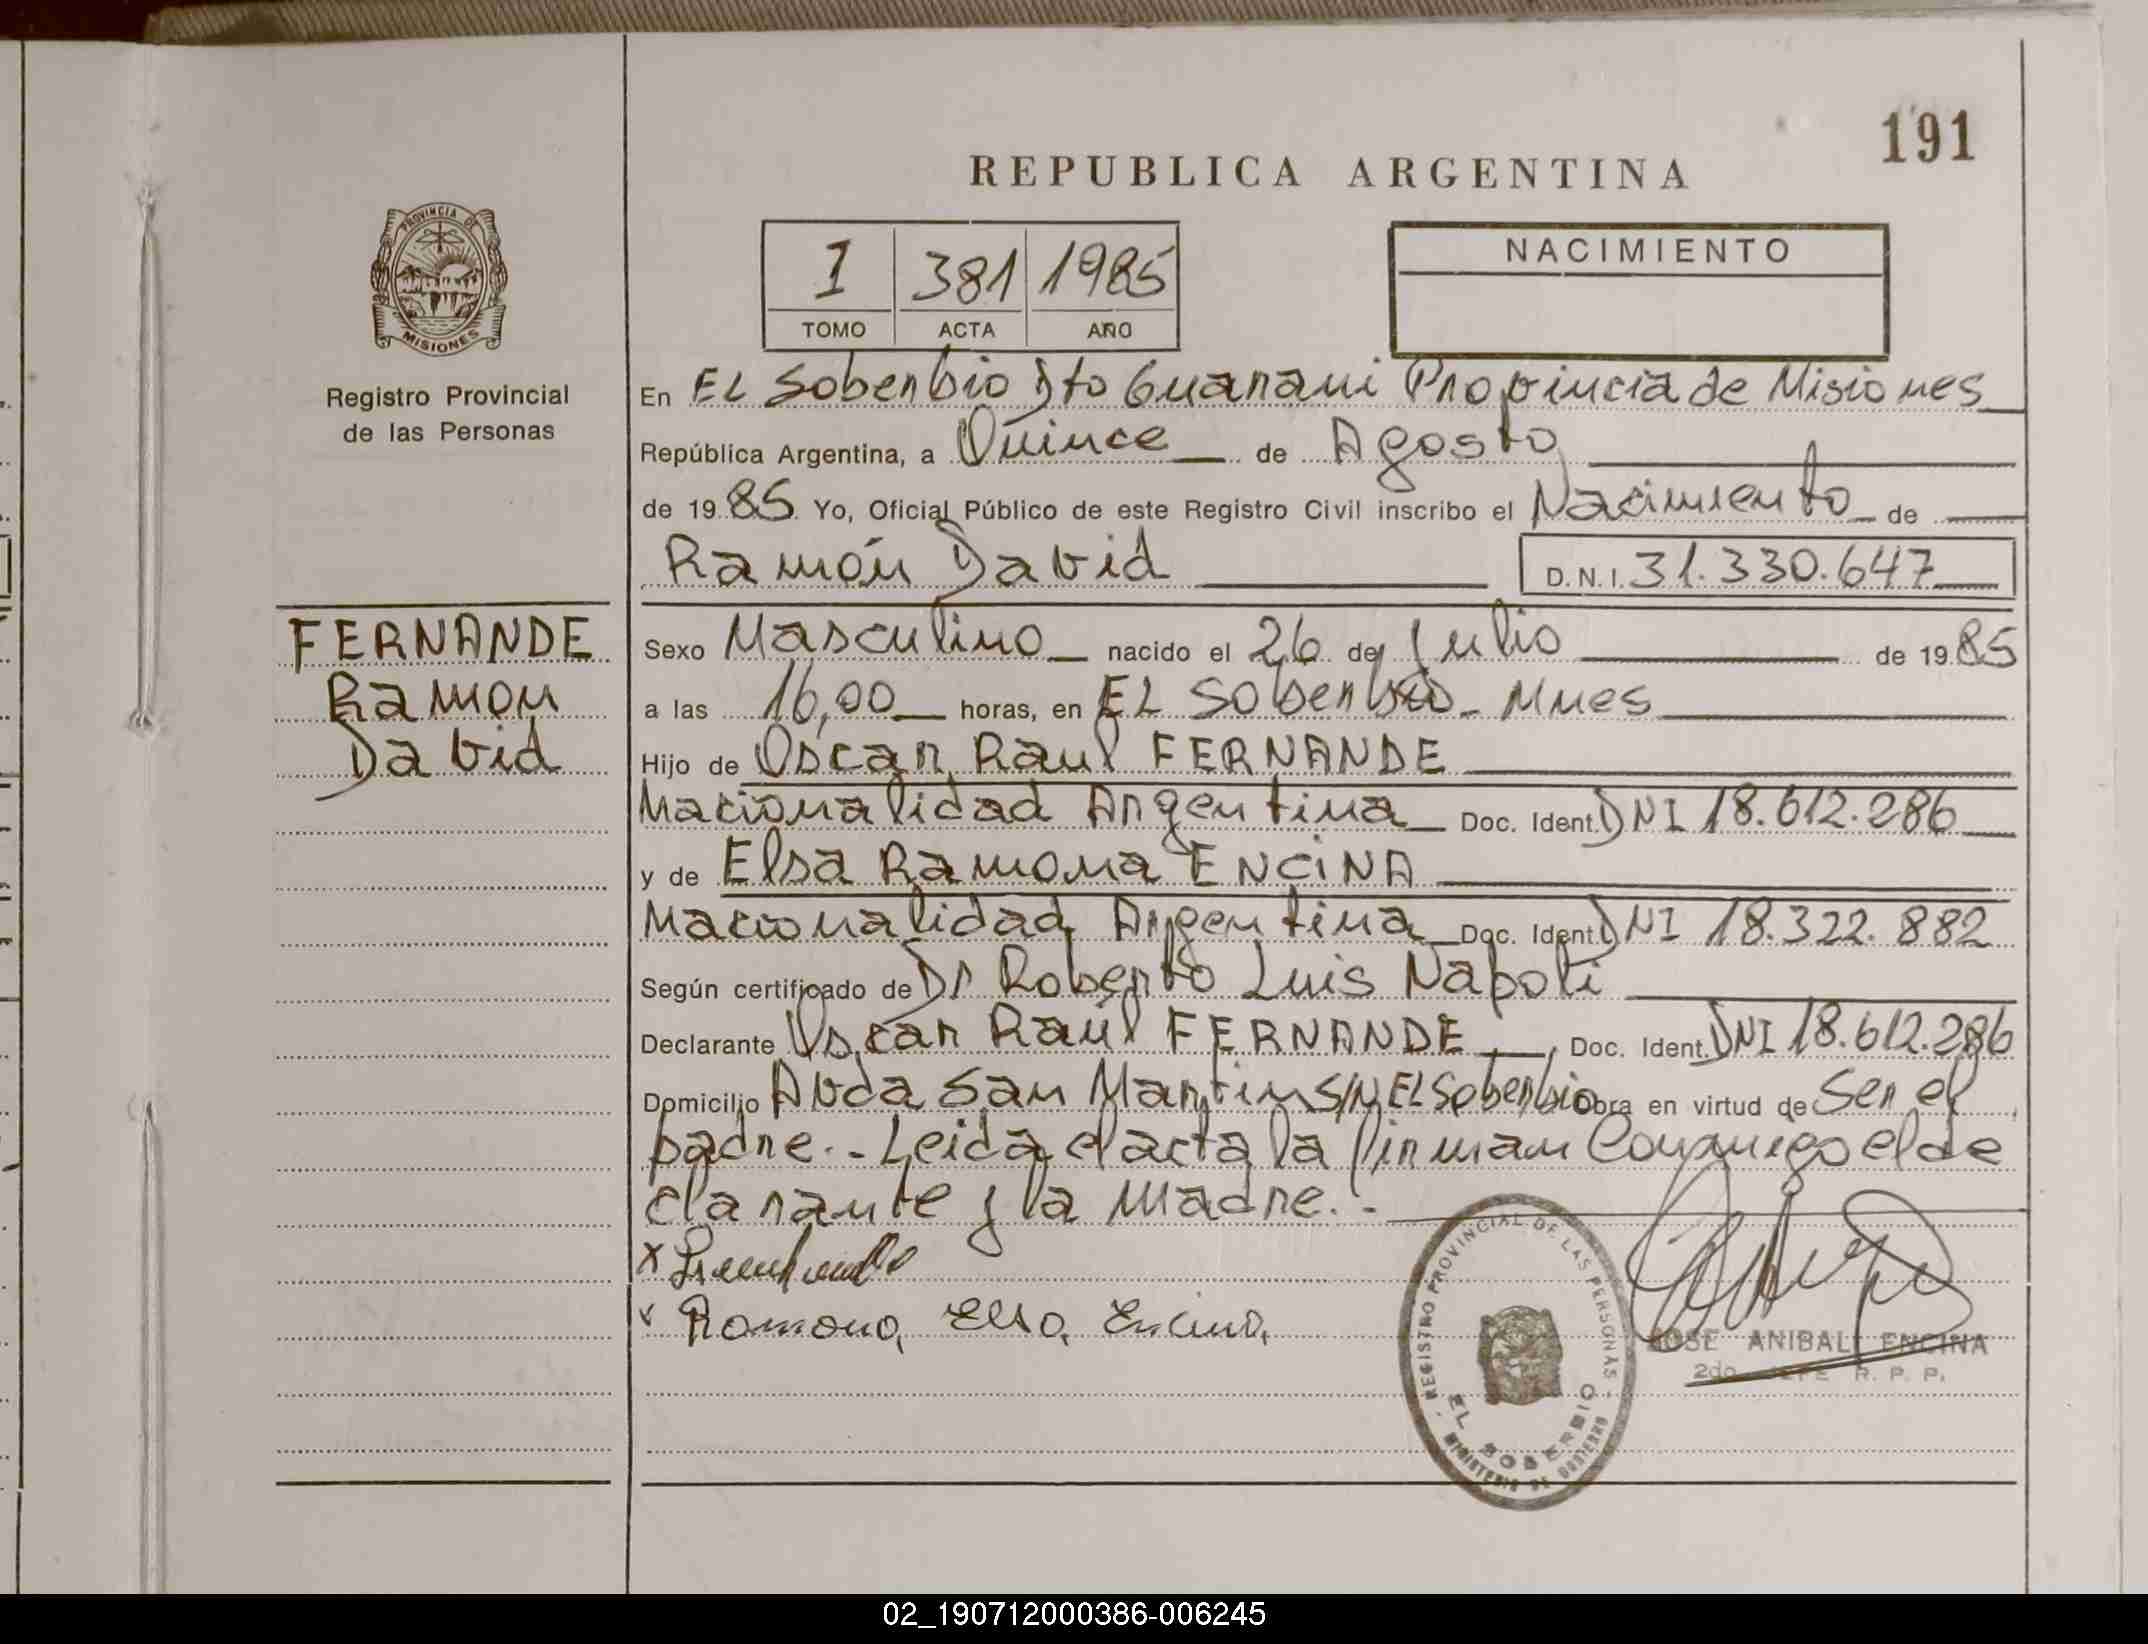 191
REPUBLICA ARGENTINA
PROVINCIA DE
MISIONES
Registro Provincial
de las Personas
I 381 1985
TOMO ACTA AÑO
NACIMIENTO
En EL Soberbio Dto Guarani Provincia de Misiones
República Argentina, a Quince de Agosto
de 1985 Yo, Oficial Público de este Registro Civil inscribo el Nacimiento de
Ramón David D.N.I. 31.330.647
FERNANDE
Ramon
David
Sexo Masculino nacido el 26 de Julio de 1985
a las 16,00 horas, en EL Soberbio - Mnes
Hijo de Oscar Raul FERNANDE
Nacionalidad Argentina Doc. Ident. DNI 18.612.286
y de Elsa Ramona ENCINA
Nacionalidad Argentina Doc. Ident. DNI 18.322.882
Según certificado de Dr Roberto Luis Napoli
Declarante Oscar Raúl FERNANDE, Doc. Ident. DNI 18.612.286
Domicilio Avda San Martin S/N EL Soberbio obra en virtud de Ser el
padre.- Leida el acta la firman Conmigo el de
clarante y la Madre.-
x
Ramona, Elsa, Encina,
REGISTRO PROVINCIAL DE LAS PERSONAS
EL SOBERBIO
MINISTERIO DE GOBIERNO
JOSE ANIBAL ENCINA
2do JEFE R. P. P.
02_190712000386-006245